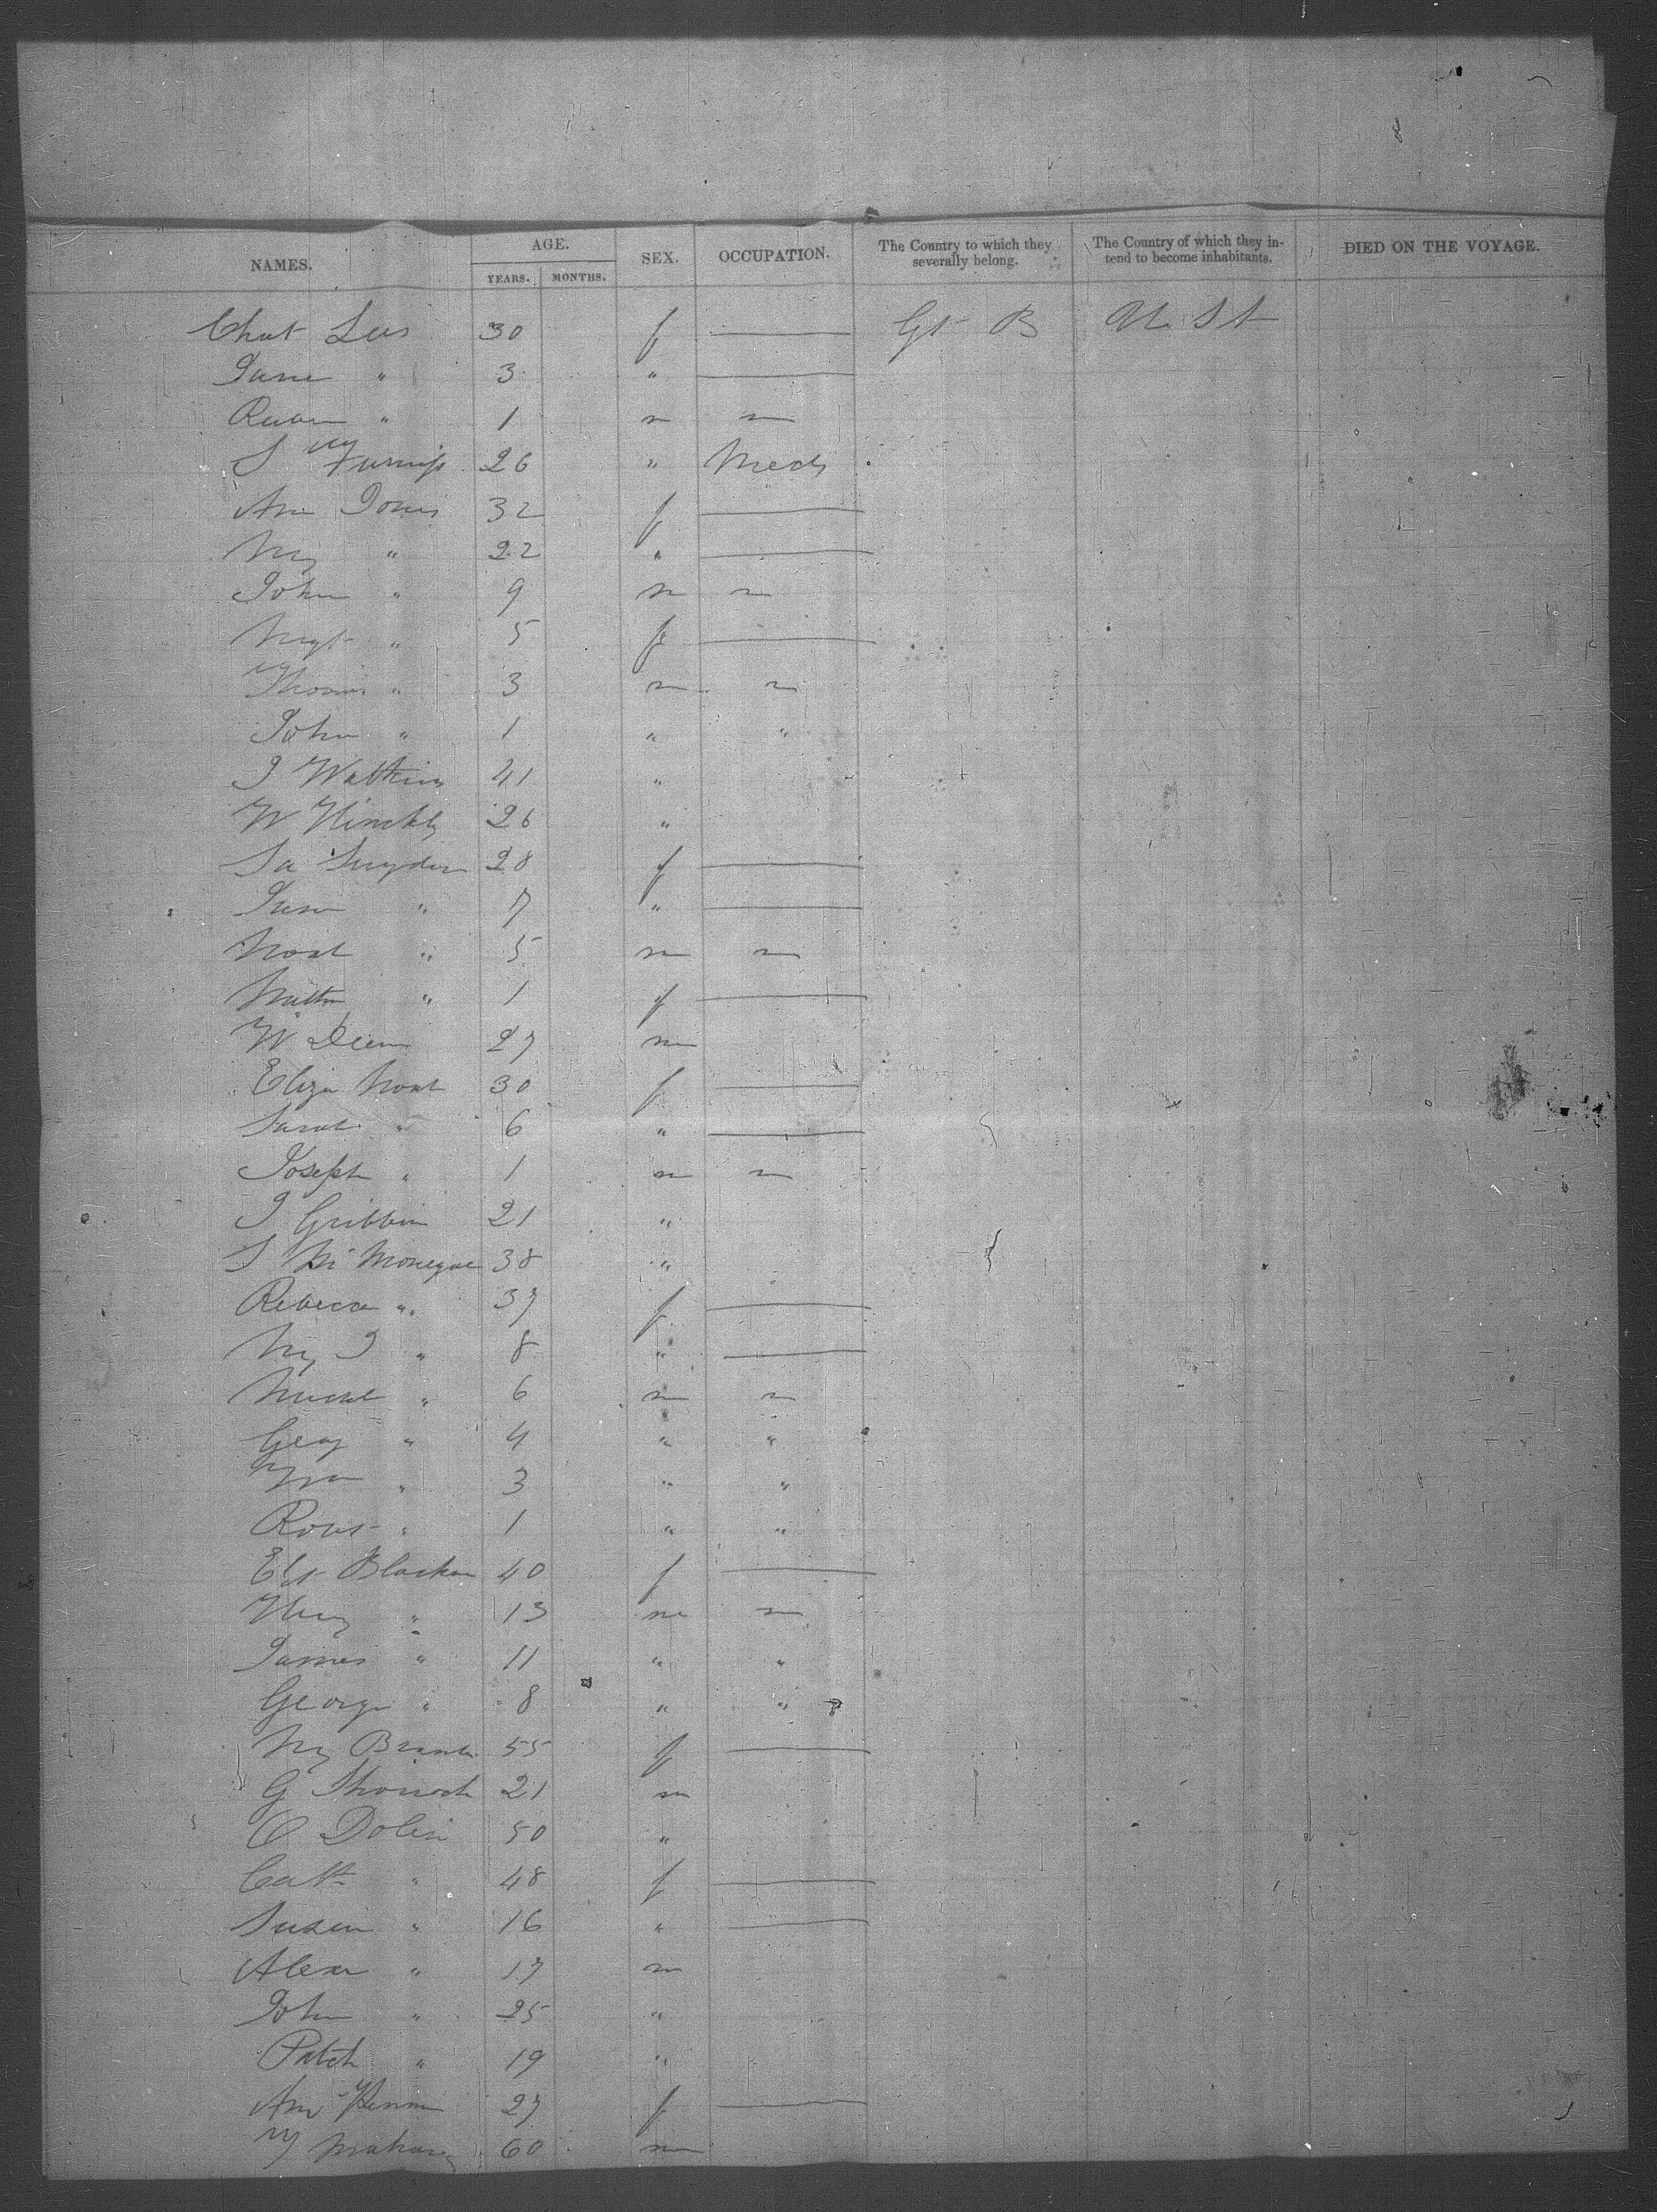 NAMES. AGE. YEARS. MONTHS. SEX. OCCUPATION. The Country to which they severally belong. The Country of which they intend to become inhabitants. DIED ON THE VOYAGE.
Chat Lees 30 f — Gt B U St
Jane " 3 " —
Ruben " 1 m m
S Furniss 26 " Mech
Ann Jones 32 f —
My " 22 " —
John " 9 m m
Mgt " 5 f —
Thomas " 3 m m
John " 1 " "
J Watkins 41 "
W Hinckly 26 "
Sa Snyder 28 f —
" 7 " —
Noah " 5 m m
" 1 f —
W 27 m
Eliza 30 f —
Sarah " 6 " —
Joseph " 1 m m
J Gribbin 21 "
S Mc Monegal 38 "
Rebeca " 37 f —
My J " 8 " —
" 6 m m
Geog " 4 " "
Wm " 3 " "
Robt " 1 " "
Elz 40 f —
Heny " 13 m m
James " 11 " "
George " 8 " "
My 55 f —
G 21 m
C Dolin 50 "
Cath " 48 f —
Susan " 16 " —
Alexr " 17 m
John " 25 "
Patck " 19 "
Ann 27 f —
60 m